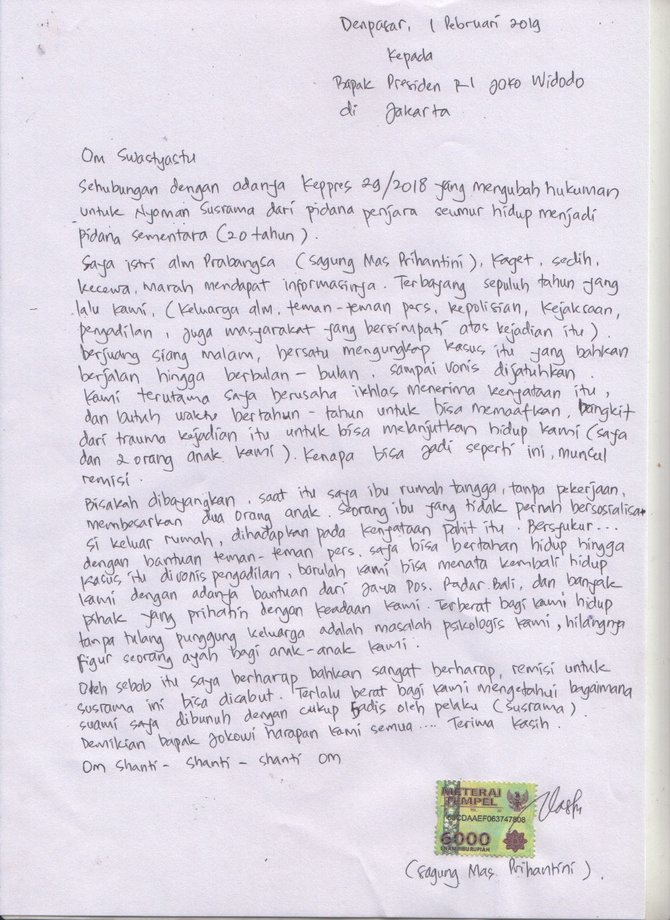 Denpasar, 1 Pebruari 2019
Kepada
Bapak Presiden RI Joko Widodo
di Jakarta
Om Swastyastu
Sehubungan dengan adanya Keppres 29/2018 yang mengubah hukuman
untuk Nyoman Susrama dari pidana penjara seumur hidup menjadi
pidana sementara (20 tahun).
Saya istri alm Prabangsa (Sagung Mas Prihantini), kaget, sedih,
kecewa, marah mendapat informasinya. Terbayang sepuluh tahun yang
lalu kami, (keluarga alm, teman-teman pers, kepolisian, kejaksaan,
pengadilan, juga masyarakat yang bersimpati atas kejadian itu).
berjuang siang malam, bersatu mengungkap kasus itu yang bahkan
berjalan hingga berbulan-bulan, sampai vonis dijatuhkan.
Kami terutama saya berusaha ikhlas menerima kenyataan itu,
dan butuh waktu bertahun-tahun untuk bisa memaafkan, bangkit
dari trauma kejadian itu untuk bisa melanjutkan hidup kami (saya
dan 2 orang anak kami). Kenapa bisa jadi seperti ini, muncul
remisi.
Bisakah dibayangkan, saat itu saya ibu rumah tangga, tanpa pekerjaan,
membesarkan dua orang anak. Seorang ibu yang tidak pernah bersosialisa-
si keluar rumah, dihadapkan pada kenyataan pahit itu. Bersyukur...
dengan bantuan teman-teman pers, saya bisa bertahan hidup hingga
kasus itu divonis pengadilan, barulah kami bisa menata kembali hidup
kami dengan adanya bantuan dari Jawa Pos, Radar Bali, dan banyak
pihak yang prihatin dengan keadaan kami. Terberat bagi kami hidup
tanpa tulang punggung keluarga adalah masalah psikologis kami, hilangnya
figur seorang ayah bagi anak-anak kami.
Oleh sebab itu saya berharap bahkan sangat berharap, remisi untuk
susrama ini bisa dicabut. Terlalu berat bagi kami mengetahui bagaimana
suami saya dibunuh dengan cukup sadis oleh pelaku (Susrama).
Demikian bapak Jokowi harapan kami semua.... Terima kasih.
Om Shanti - Shanti - Shanti Om
METERAI
TEMPEL
6000
ENAM RIBU RUPIAH
(Sagung Mas Prihantini).